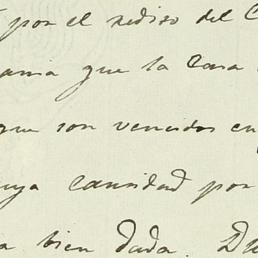 por el rediso del C
ania que la Casa
que son vencidos en
uya cantidad por
a bien dada. Du